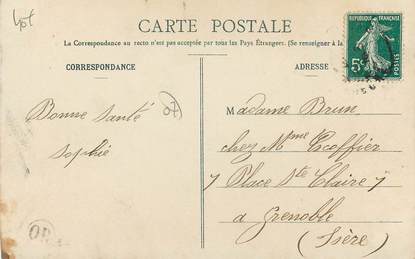 Lot
CARTE POSTALE
La Correspondance au recto n'est pas acceptée par tous les Pays Étrangers. (Se renseigner à la
CORRESPONDANCE
ADRESSE
RÉPUBLIQUE FRANÇAISE
5c
POSTES
Bonne Santé
Sophie
Madame Brun
chez Mme Escoffier
7 Place Ste Claire 7
a Grenoble
(Isère)